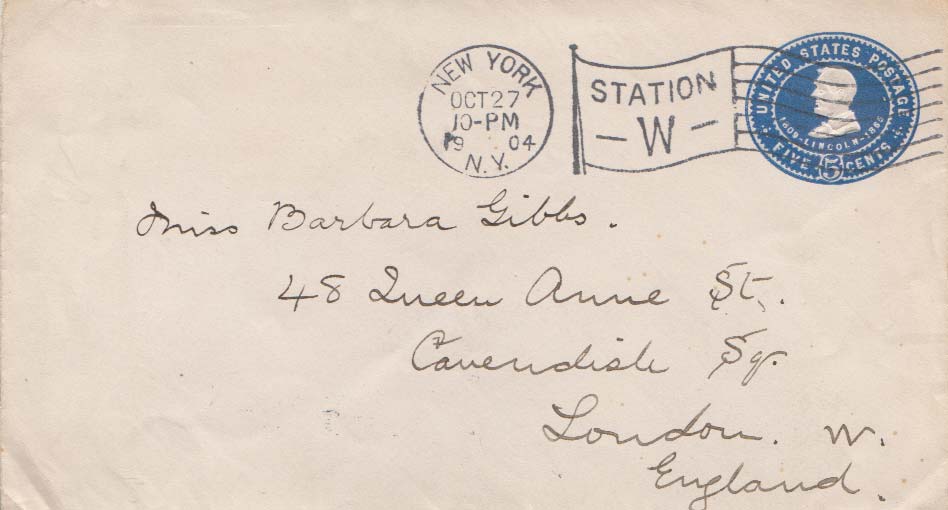 NEW YORK
OCT 27
10-PM
19 04
N.Y.
STATION
- W -
UNITED STATES POSTAGE
1809-LINCOLN-1865
FIVE 5 CENTS
Miss Barbara Gibbs.
48 Queen Anne St.
Cavendish Sq.
London. W.
England.